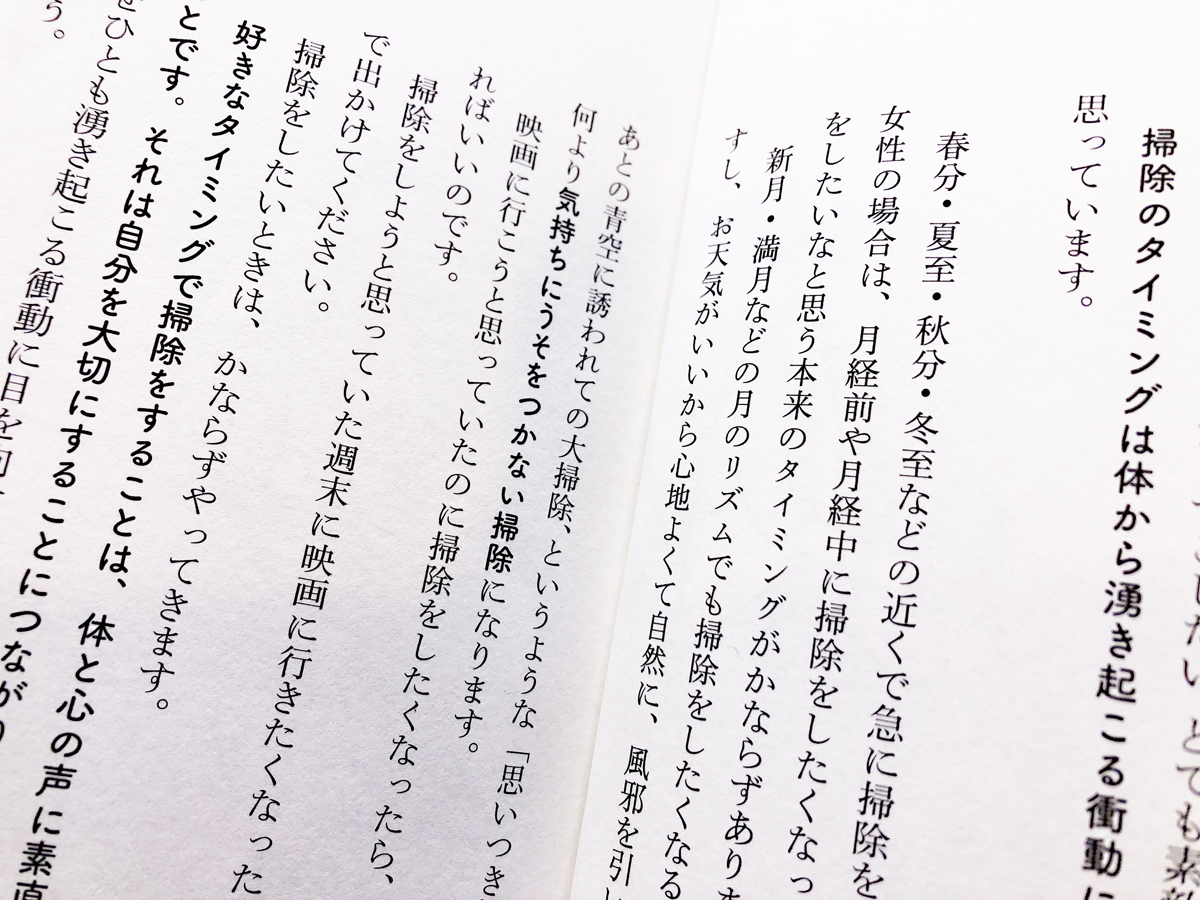 したい、とても素
掃除のタイミングは体から湧き起こる衝動に
思っています。
春分・夏至・秋分・冬至などの近くで急に掃除を
女性の場合は、月経前や月経中に掃除をしたくなっ
をしたいなと思う本来のタイミングがかならずありま
新月・満月などの月のリズムでも掃除をしたくなる
すし、お天気がいいから心地よくて自然に、風邪を引い
あとの青空に誘われての大掃除、というような「思いつき
何より気持ちにうそをつかない掃除になります。
映画に行こうと思っていたのに掃除をしたくなったら、
ればいいのです。
掃除をしようと思っていた週末に映画に行きたくなった
で出かけてください。
掃除をしたいときは、かならずやってきます。
好きなタイミングで掃除をすることは、体と心の声に素直
とです。それは自分を大切にすることにつながり
ひとも湧き起こる衝動に目を向
う。